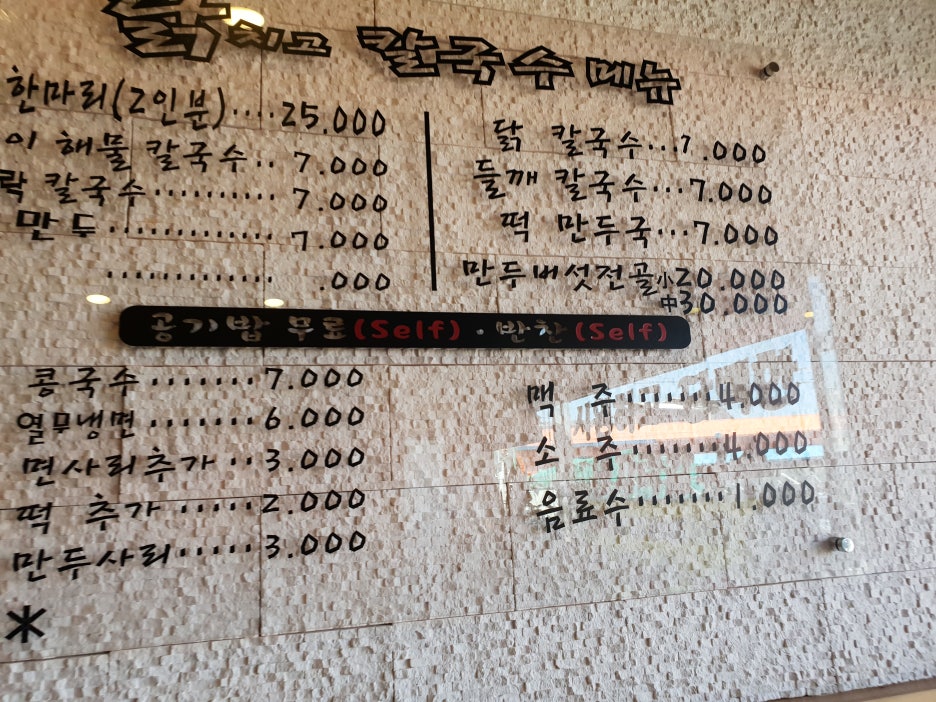 닭치고 칼국수 메뉴
한마리(2인분)····25.000
이 해물 칼국수··7.000
락 칼국수··········7.000
만두·············7.000
············· .000
닭 칼국수···7.000
들깨 칼국수···7.000
떡 만두국···7.000
만두버섯전골小20.000
中30.000
공기밥 무료(Self)·반찬(Self)
콩국수·······7.000
열무냉면·······6.000
면사리추가··3.000
떡 추가·····2.000
만두사리·····3.000
맥 주·······4.000
소 주·······4.000
음료수·······1.000
*